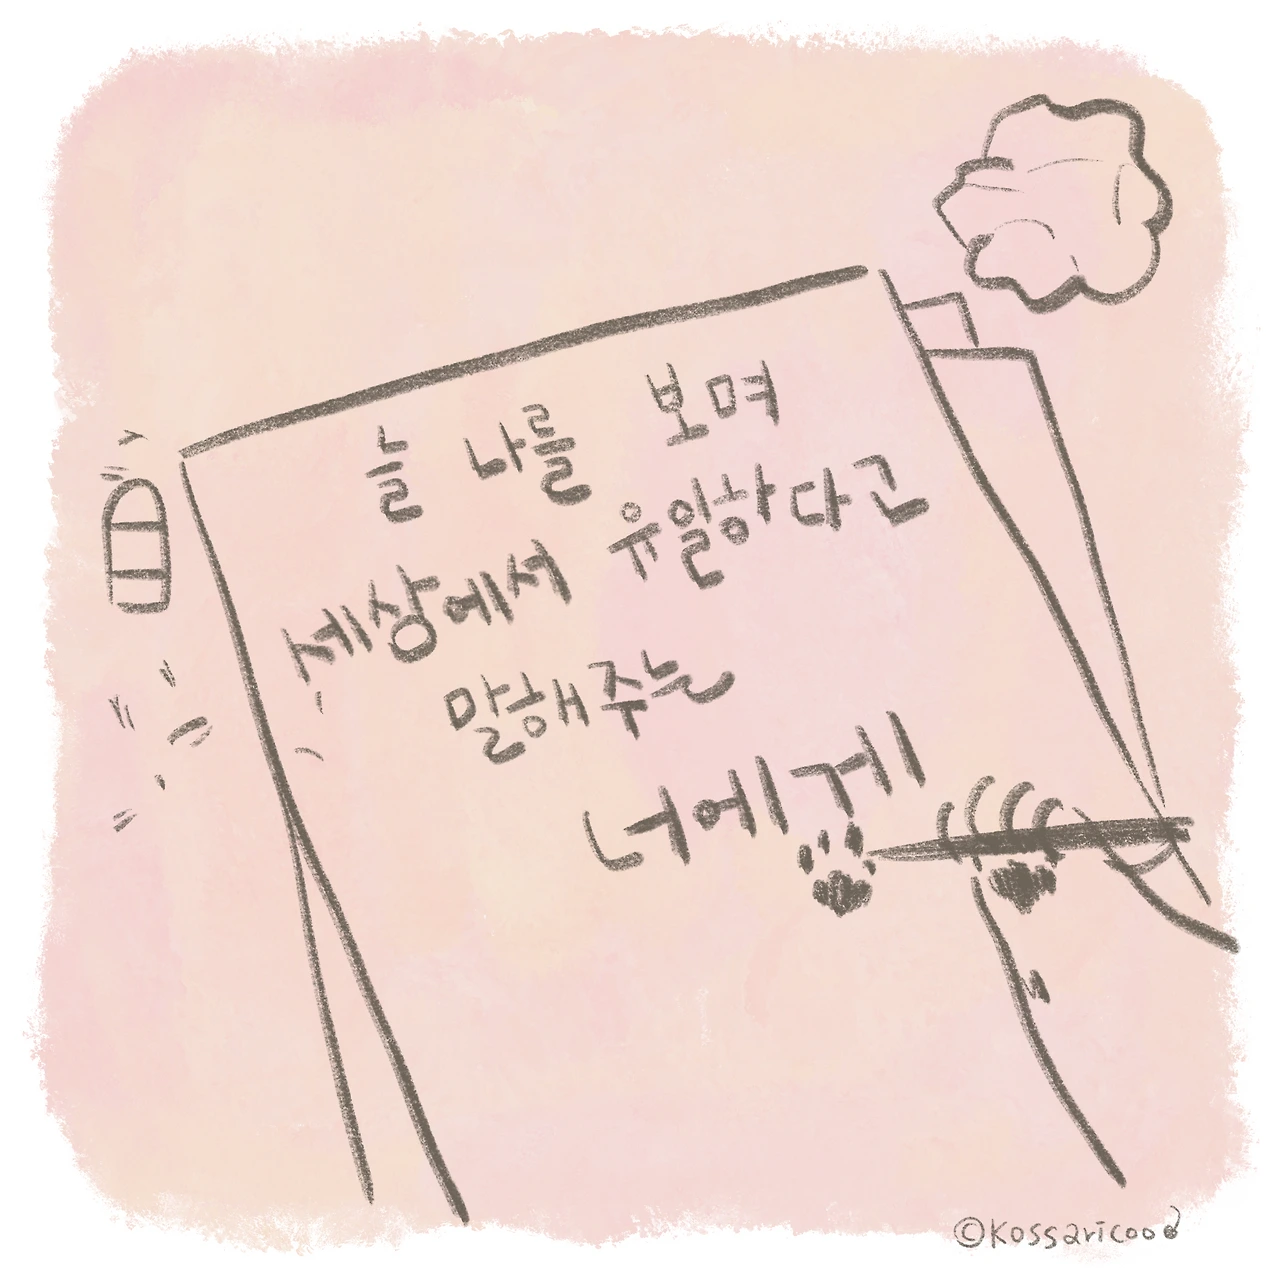 늘 나를 보며
세상에서 유일하다고
말해주는
너에게
©kossaricood